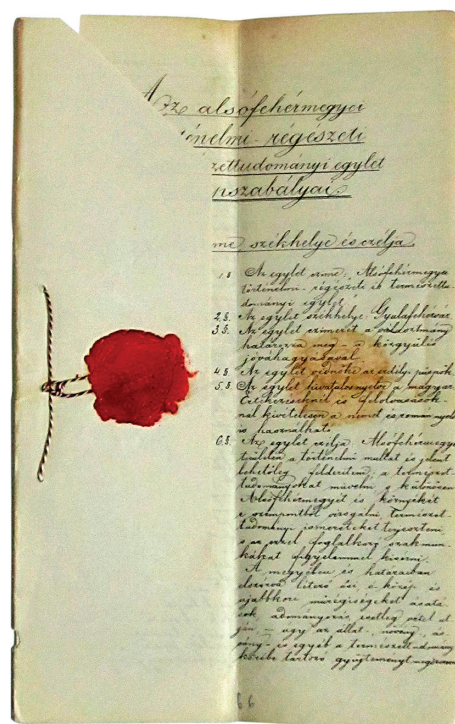 Az alsófehérmegyei
énelmi-régészeti
zettudományi egylet
pszabályai.
me székhelye és czélja.
1. §. Az egylet czime: Alsófehérmegye
történelmi-régészeti és természettu-
dományi egylet
2. §. Az egylet székhelye: Gyulafehérvár
3. §. Az egylet czimerét a választmány
határozza meg – a közgyülés
jóváhagyásával.
4. §. Az egylet védnöke az erdélyi püspök.
5. §. Az egylet hivatalos nyelve a magyar.
Értekezéseknél és felolvasások-
nál kivételesen a német és román nyelv
is használható.
6. §. Az egylet czélja: Alsófehérmegye
területén a történelmi multat és jelent
lehetőleg felderiteni; a természet-
tudományokat müvelni s különösen
Alsófehérmegyét és környékét
e szempontból vizsgálni, természet-
tudományi ismereteket terjeszteni
s az ezzel foglalkozó szakmun-
kákat figyelemmel kisérni.
A megyében és határaiban
elszórva létező ősi, közép és
ujabbkori mürégiségeket ásatá
sok, adományozás, esetleg vétel ut
ján – ugy az állat-, növény-, ás
vány- és egyéb a természettudomány
körébe tartozó gyüjteményt
66